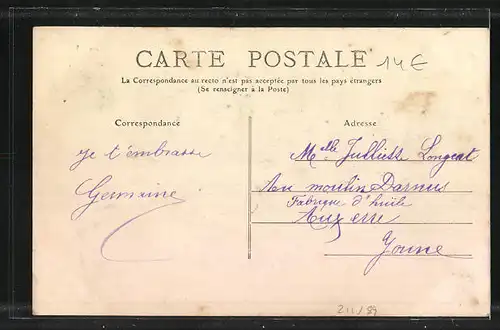 CARTE POSTALE
14€
La Correspondance au recto n'est pas acceptée par tous les pays étrangers
(Se renseigner à la Poste)
Correspondance
Adresse
je t'embrasse
Germaine
Melle Julliette Longeat
Au moulin Darnus
Fabrique d'huile
Auxerre
Yonne
211/89